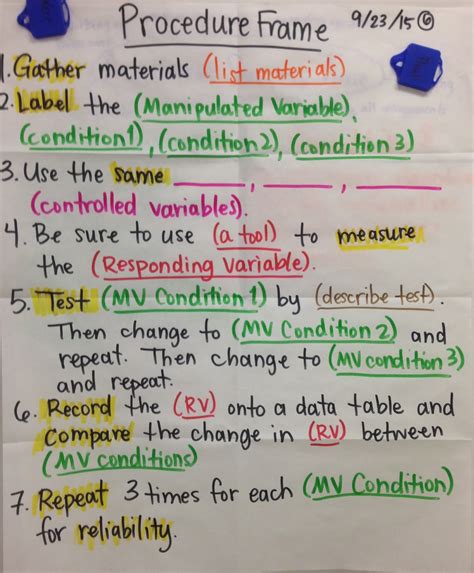 Procedure Frame 9/23/15 ⑥
1. Gather materials (list materials)
2. Label the (Manipulated Variable),
(condition 1), (condition 2), (condition 3)
3. Use the same ______, ______, ______
(controlled variables).
4. Be sure to use (a tool) to measure
the (Responding Variable).
5. Test (MV Condition 1) by (describe test).
Then change to (MV Condition 2) and
repeat. Then change to (MV condition 3)
and repeat.
6. Record the (RV) onto a data table and
Compare the change in (RV) between
(MV conditions)
7. Repeat 3 times for each (MV Condition)
for reliability.